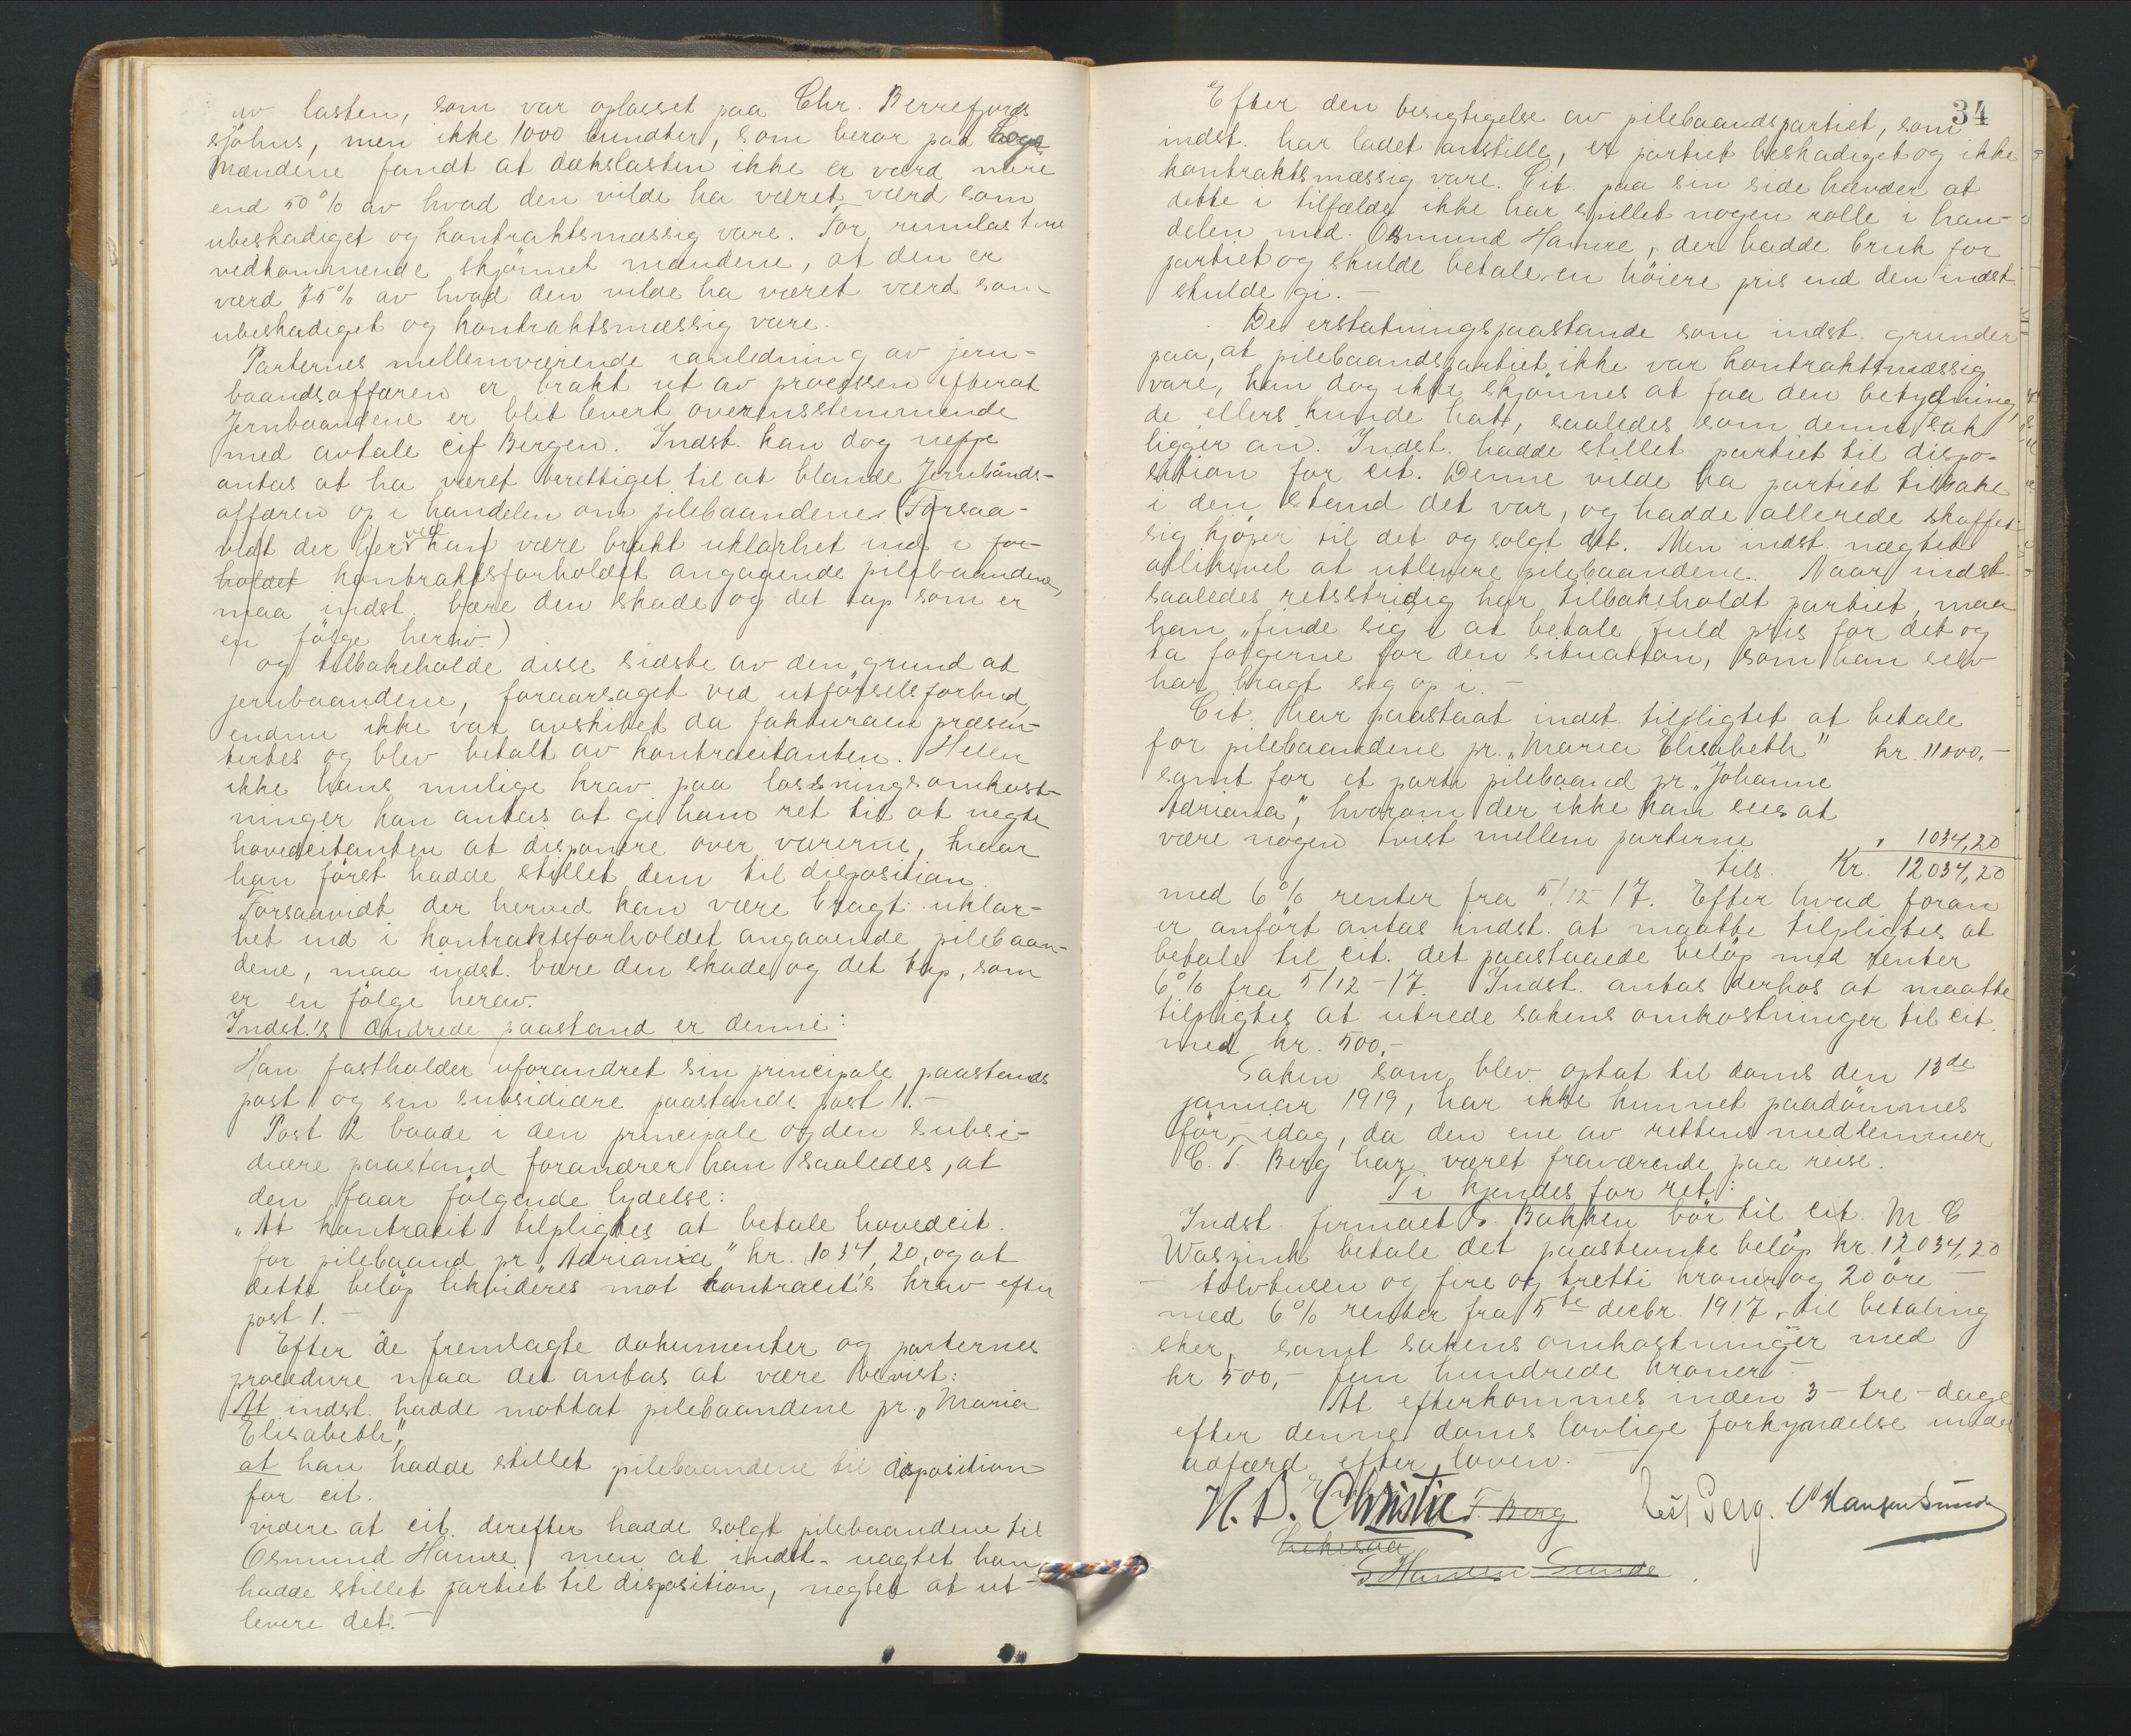 av lasten, som var oplosset paa Chr. Berrefjords
sjöhus, men ikke 1000 bundter, som beror paa
Mændene fandt at dækslasten ikke er værd mere
end 50% av hvad den vilde ha været værd som
ubeskadiget og kontraktsmæssig vare. For rumlastens
vedkommende skjönnet mændene, at den er
værd 75% av hvad den vilde ha været værd som
ubeskadiget og kontraktsmæssig vare.
Parternes mellemværende ianledning av jern-
baandsaffæren er brakt ut av processen efterat
Jernbaandene er blit levert overensstemmende
med avtale cif Bergen. Indst. kan dog neppe
antas at ha været berettiget til at blande Jernbånds-
affæren op i handelen om pilebaandene (Forsaa-
vidt der herved kan være brakt uklarhet ind i for-
holdet kontraktsforholdet angaaende pilebaandene,
maa indst. bære den skade og det tap som er
en fölge herav.)
og tilbakeholde disse sidste av den grund at
jernbaandene, foraarsaget ved utförselsforbud,
endnu ikke var avskibet da fakturaen præsen-
tertes og blev betalt av kontracitanten. Heller
ikke hans mulige krav paa losningsomkost-
ninger kan antas at gi ham ret til at negte
hovedcitanten at disponere over varerne, naar
han först hadde stillet dem til disposition.
Forsaavidt der herved kan være bragt uklar-
het ind i kontraktsforholdet angaaende pilebaan-
dene, maa indst. bære den skade og det tap, som
er en fölge herav.
Indst.'s ændrede paastand er denne:
Han fastholder uforandret sin principale paastands
post 1 og sin subsidiære paastands post 1.-
Post 2 baade i den principale og den subsi-
diære paastand forandrer han saaledes, at
den faar fölgende lydelse:
"At kontracit tilpligtes at betale hovedcit.
for pilebaand pr "Adriana" kr. 1034,20, og at
dette belöp likvideres mot kontracit's krav efter
post 1. -
Efter de fremlagte dokumenter og parternes
procedure maa det antas at være bevist:
At indst. hadde mottat pilebaandene pr. "Maria
Elisabeth",
at han hadde stillet pilebaandene til disposition
for cit.
videre at cit. derefter hadde solgt pilebaandene til
Osmund Hamre, men at indst. uagtet han
hadde stillet partiet til disposition, negtet at ut-
levere det. -
34
Efter den besigtigelse av pilebaandspartiet, som
indst. har ladet anstille, er partiet beskadiget og ikke
kontraktsmæssig vare. Cit. paa sin side hævder at
dette i tilfælde ikke har spillet nogen rolle i han-
delen med Osmund Hamre, der hadde bruk for
partiet og skulde betale en höiere pris end den indst.
skulde gi. -
De erstatningspaastande som indst. grunder
paa, at pilebaandspartiet ikke var kontraktsmæssig
vare, kan dog ikke skjönnes at faa den betydning,
de ellers kunde hatt, saaledes som denne sak
ligger an. Indst. hadde stillet partiet til dispo-
sition for cit. Denne vilde ha partiet tilbake
i den stand det var, og hadde allerede skaffet
sig kjöper til det og solgt det. Men indst. nægtet
allikevel at utlevere pilebaandene. Naar indst.
saaledes retsstridig har tilbakeholdt partiet, maa
han finde sig i at betale fuld pris for det og
ta fölgerne for den situation, som han selv
har bragt sig op i. -
Cit. har paastaat indst. tilpligtet at betale
for pilebaandene pr. "Maria Elisabeth" kr. 11000,-
samt for et parti pilebaand pr. "Johanne
Adriana", hvorom der ikke kan sees at
være nogen tvist mellem parterne " 1034,20
tils. Kr. 12034,20
med 6% renter fra 5/12-17. Efter hvad foran
er anfört antas indst. at maatte tilpligtes at
betale til cit. det paastaaede belöp med renter
6% fra 5/12-17. Indst. antas derhos at maatte
tilpligtes at utrede sakens omkostninger til cit.
med kr. 500,-
Saken som blev optat til doms den 13de
januar 1919, har ikke kunnet paadömmes
för idag, da den ene av rettens medlemmer
C. T. Berg har været fraværende paa reise.
Ti kjendes for ret:
Indst. firmaet S. Bakken bör til cit. M C
Waszink betale det paastevnte belöp kr. 12034,20
- tolvtusen og fire og tretti kroner og 20 öre -
med 6% renter fra 5te decbr. 1917, til betaling
sker, samt sakens omkostninger med
kr 500,- fem hundrede kroner. -
At efterkommes inden 3 - tre - dage
efter denne doms lovlige forkyndelse under
adfærd efter loven. -
H. D. Christie T. Berg Berg. Hansen Sunde
Hansen Sunde